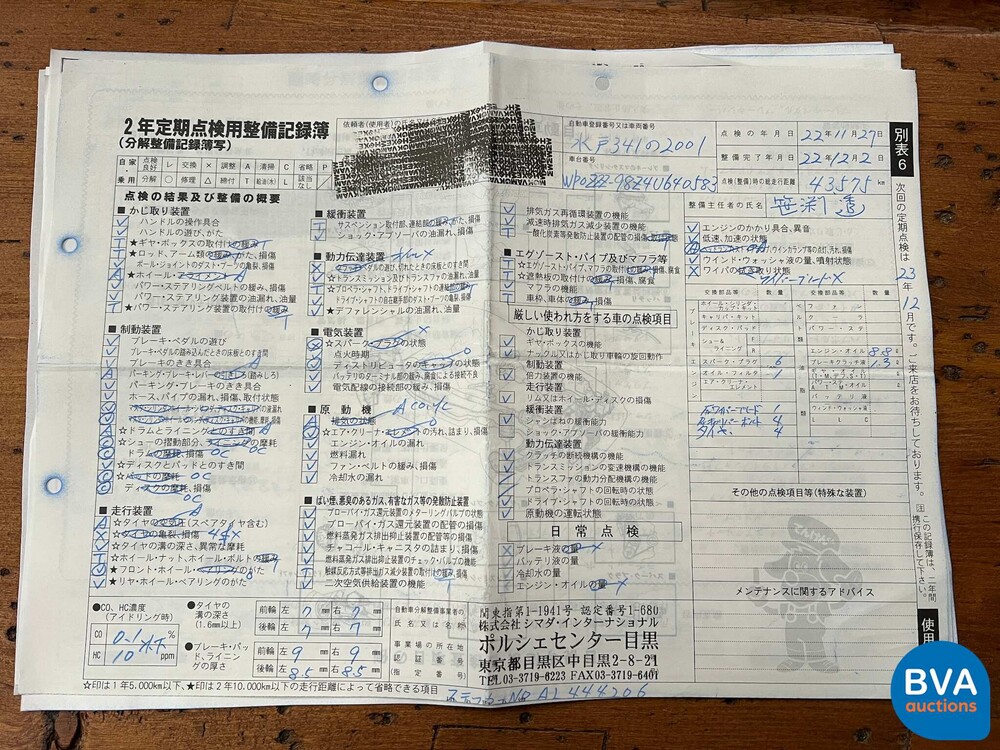 2年定期点検用整備記録簿
(分解整備記録簿写)
依頼者(使用者)の氏名
自動車登録番号又は車両番号
水戸341の2001
車台番号
WP0ZZZ-98Z4U640583
点検の年月日 22年11月27日
整備完了年月日 22年12月2日
点検(整備)時の総走行距離 43575 km
整備主任者の氏名
別表6
自家乗用
点検良好 レ 交換 × 調整 A 清掃 C 省略 P
分解 ○ 修理 △ 締付 T 給油(水) L 該当なし
点検の結果及び整備の概要
■かじ取り装置
ハンドルの操作具合
ハンドルの遊び、がた
★ギヤ・ボックスの取付けの緩み T
★ロッド、アーム類の緩み、がた、損傷
ボール・ジョイントのダスト・ブーツの亀裂、損傷
★ホイール・アライメント
パワー・ステアリングベルトの緩み、損傷
パワー・ステアリング装置の油漏れ、油量
★パワー・ステアリング装置の取付けの緩み
■制動装置
ブレーキ・ペダルの遊び
ブレーキ・ペダルの踏み込んだときの床板とのすき間
ブレーキのきき具合
パーキング・ブレーキ・レバーの引きしろ(踏みしろ)
パーキング・ブレーキのきき具合
ホース、パイプの漏れ、損傷、取付状態
☆ドラムとライニングとのすき間
☆シューの摺動部分、ライニングの摩耗
ドラムの摩耗、損傷 OC
☆ディスクとパッドとのすき間
☆パッドの摩耗 OC
ディスクの摩耗、損傷
OC
■走行装置
☆タイヤの空気圧(スペアタイヤ含む)
☆タイヤの亀裂、損傷 4本X
☆タイヤの溝の深さ、異常な摩耗
☆ホイール・ナット、ホイール・ボルトの緩み
★フロント・ホイール・ベアリングのがた
★リヤ・ホイール・ベアリングのがた
■緩衝装置
サスペンション取付部、連結部の緩み、がた、損傷
ショック・アブソーバの油漏れ、損傷
■動力伝達装置
クラッチペダルの遊び、切れたときの床板とのすき間
☆トランスミッション及びトランスファの油漏れ、油量
★プロペラ・シャフト、ドライブ・シャフトの連結部の緩み
ドライブ・シャフトの自在継手部のダスト・ブーツの亀裂、損傷
★デファレンシャルの油漏れ、油量
■電気装置
☆スパーク・プラグの状態
点火時期
ディストリビュータのキャップの状態
バッテリのターミナル部の緩み、腐食による接続不良
電気配線の接続部の緩み、損傷
■原動機
排気の状態
☆エア・クリーナ・エレメントの汚れ、詰まり、損傷
エンジン・オイルの漏れ
燃料漏れ
ファン・ベルトの緩み、損傷
冷却水の漏れ
■ばい煙、悪臭のあるガス、有害なガス等の発散防止装置
ブローバイ・ガス還元装置のメターリングバルブの状態
ブローバイ・ガス還元装置の配管の損傷
燃料蒸発ガス排出抑止装置の配管等の損傷
チャコール・キャニスタの詰まり、損傷
燃料蒸発ガス排出抑止装置のチェック・バルブの機能
触媒反応方式等排出ガス減少装置の取付けの緩み、損傷
二次空気供給装置の機能
排気ガス再循環装置の機能
減速時排気ガス減少装置の機能
一酸化炭素等発散防止装置の配管の損傷、取付状態
■エグゾースト・パイプ及びマフラ等
☆エグゾースト・パイプ、マフラの取付けの緩み、損傷、腐食
☆遮熱板の取付けの緩み、損傷、腐食
マフラの機能
■車枠、車体の緩み、損傷
厳しい使われ方をする車の点検項目
かじ取り装置
ギヤ・ボックスの機能
ナックル又はかじ取り車輪の旋回動作
制動装置
倍力装置の機能
走行装置
リム又はホイール・ディスクの損傷
緩衝装置
シャシばねの緩衝能力
ショック・アブソーバの緩衝能力
動力伝達装置
クラッチの断続機構の機能
トランスミッションの変速機構の機能
トランスファの動力分配機構の機能
プロペラ・シャフトの回転時の状態
ドライブ・シャフトの回転時の状態
原動機の運転状態
日常点検
ブレーキ液の量
バッテリ液の量
冷却水の量
エンジン・オイルの量
エンジンのかかり具合、異音
低速、加速の状態
ウインド・ウォッシャ液の量、噴射状態
ワイパの拭き取り状態
交換部品等 数量 交換部品等 数量
ホイール・シリンダ・カップ・キット
キャリパ・キット
ディスク・パッド
シュー&ライニング F R
スパーク・プラグ 6
オイル・フィルタ 1
エア・クリーナ・エレメント
エンジン・オイル 8.8
ブレーキクラッチ液 1.3
バッテリ液
Fワイパーブレード 1
タイヤ 4
その他の点検項目等(特殊な装置)
てんけんくん
メンテナンスに関するアドバイス
次回の定期点検は23年12月です。ご来店をお待ちしております。
注 この記録簿は、二年間携行保存して下さい。
使用
●CO、HC濃度
(アイドリング時)
CO 0.1以下 %
HC 10 ppm
●タイヤの溝の深さ
(1.6mm以上)
前輪 左 7 mm 右 7 mm
後輪 左 7 mm 右 7 mm
●ブレーキ・パッド、ライニングの厚さ
前輪 左 9 mm 右 9 mm
後輪 左 8.5 mm 右 8.5 mm
自動車分解整備事業者の氏名又は名称
事業場の所在地
認証番号
(指定番号)
関東指第1-1941号 認定番号1-680
株式会社シマダ・インターナショナル
ポルシェセンター目黒
東京都目黒区中目黒2-8-21
TEL03-3719-6223 FAX03-3719-6401
☆印は1年5,000km以下、★印は2年10,000km以下の走行距離によって省略できる項目
ステッカーNo AL444206
BVA
auctions